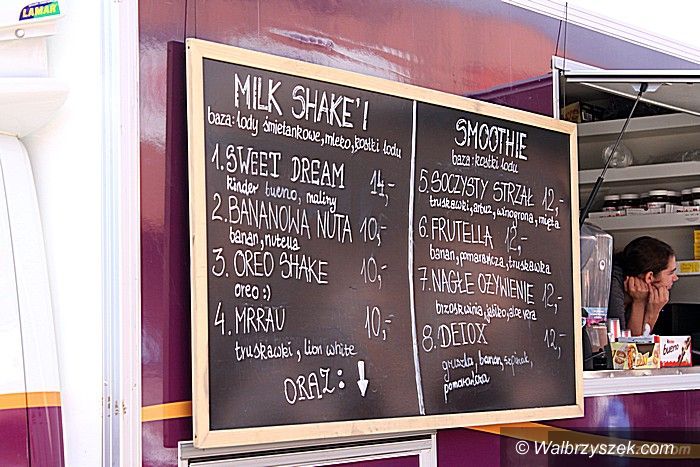 LAMAR
MILK SHAKE'I
baza: lody śmietankowe, mleko, kostki lodu
1. SWEET DREAM 14,-
kinder bueno, maliny
2. BANANOWA NUTA 10,-
banan, nutella
3. OREO SHAKE 10,-
oreo :)
4. MRRAU 10,-
truskawki, lion white
ORAZ: ↓
SMOOTHIE
baza: kostki lodu
5. SOCZYSTY STRZAŁ 12,-
truskawki, arbuz, winogrona, mięta
6. FRUTELLA 12,-
banan, pomarańcza, truskawka
7. NAGŁE OŻYWIENIE 12,-
brzoskwinia, jabłko, aloe vera
8. DETOX 12,-
gruszka, banan, szpinak,
pomarańcza
bueno
© Walbrzyszek.com